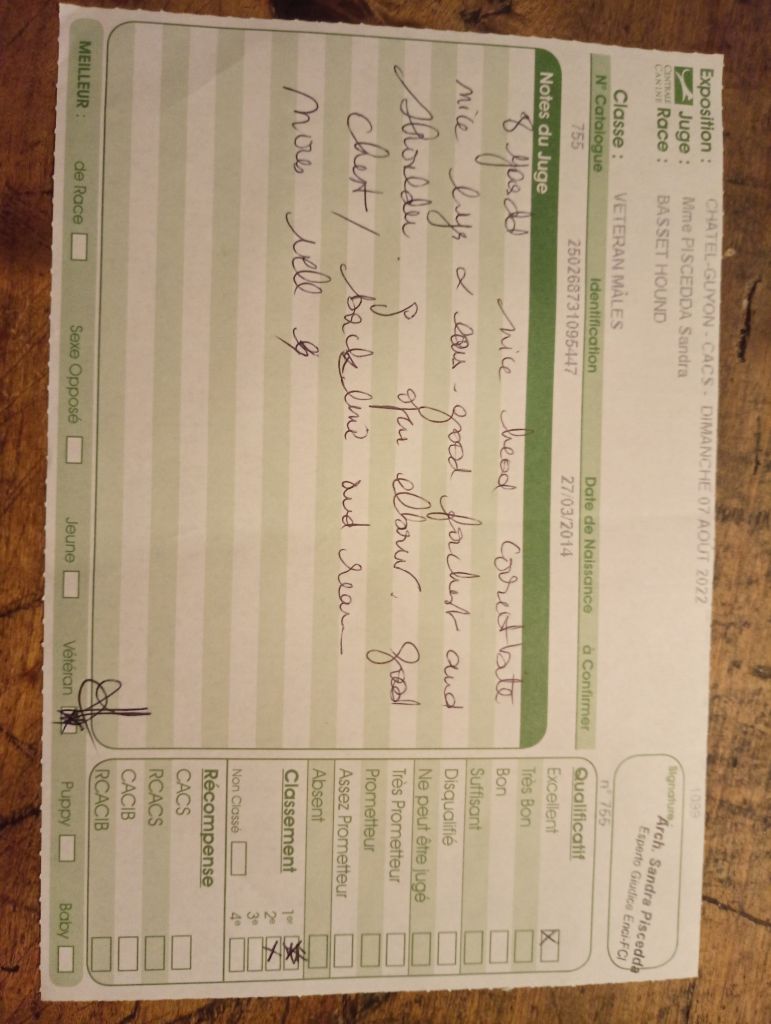 Exposition : CHATEL-GUYON - CACS - DIMANCHE 07 AOUT 2022
Juge : Mme PISCEDDA Sandra
CENTRALE CANINE
Race : BASSET HOUND
Classe : VETERAN MÂLES
1099
Signature :
Arch. Sandra Piscedda
Esperto Giudice Enci-FCI
n° 755
N° Catalogue Identification Date de Naissance à Confirmer
755 250268731095447 27/03/2014
Notes du Juge
8 years old nice head correct bite
nice eyes & ears. good forchest and
shoulder. open elbow. good
chest / back line and rear
moves well
Qualificatif
Excellent X
Très Bon
Bon
Suffisant
Disqualifié
Ne peut être jugé
Très Prometteur
Prometteur
Assez Prometteur
Absent
Classement
1er
2e X
3e
4e
Non Classé
Récompense
CACS
RCACS
CACIB
RCACIB
MEILLEUR : de Race Sexe Opposé Jeune Vétéran Puppy Baby